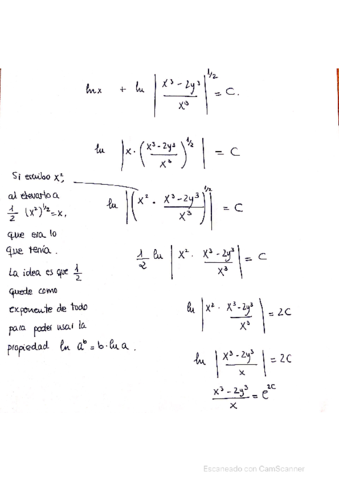 lnx + ln |(x³ - 2y³)/x³|^(1/2) = C.
ln |x · ((x³ - 2y³)/x³)^(1/2)| = C
Si escribo x²,
al elevarlo a
1/2 (x²)^(1/2) = x,
que era lo
que tenía.
La idea es que 1/2
quede como
exponente de todo
para poder usar la
propiedad ln a^b = b · ln a.
ln |(x² · (x³ - 2y³)/x³)^(1/2)| = C
1/2 ln |x² · (x³ - 2y³)/x³| = C
ln |x² · (x³ - 2y³)/x³| = 2C
ln |(x³ - 2y³)/x| = 2C
(x³ - 2y³)/x = e^(2C)
Escaneado con CamScanner